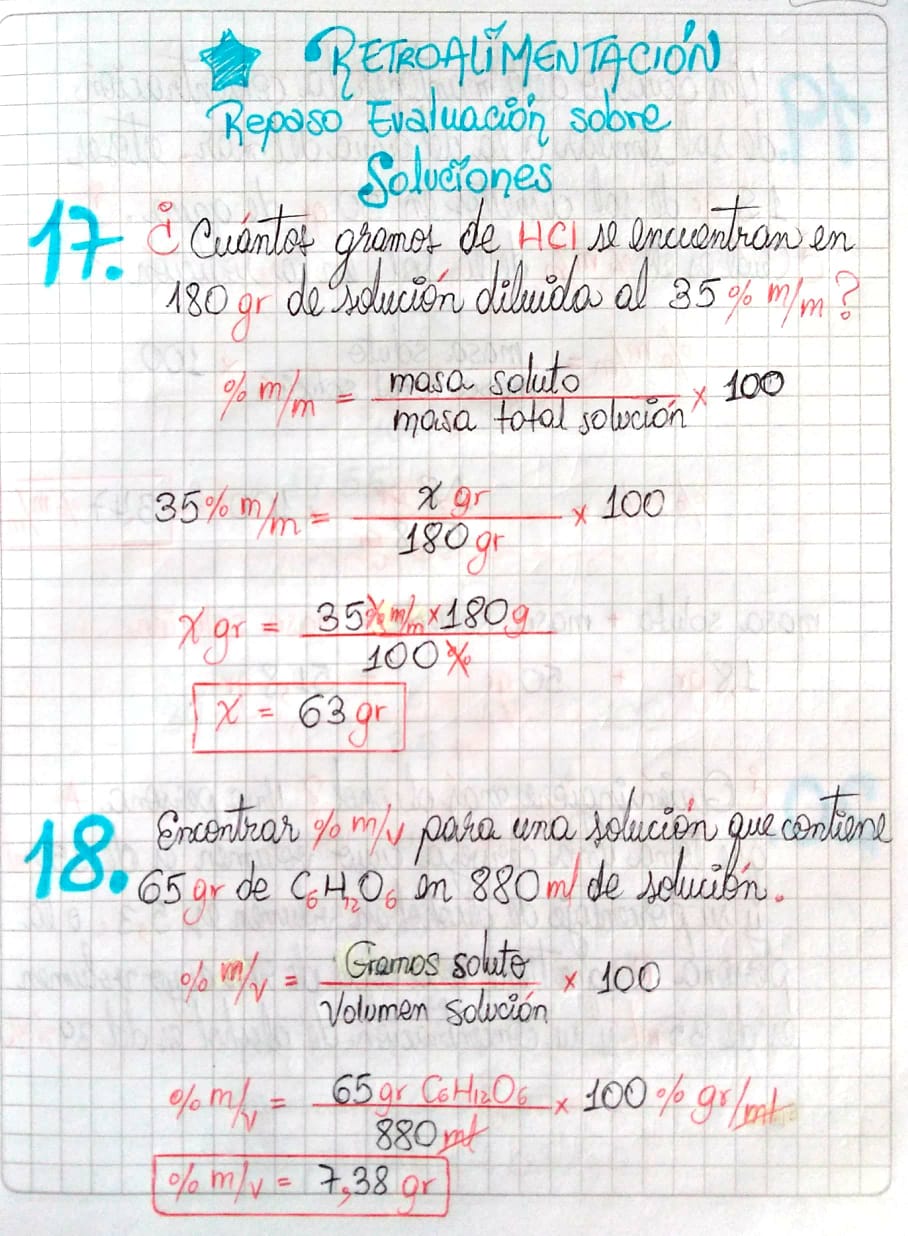 RETROALIMENTACIÓN
Repaso Evaluación sobre
Soluciones
17. ¿Cuántos gramos de HCl se encuentran en
180 gr de solución diluida al 35% m/m?
% m/m = masa soluto / masa total solución × 100
35% m/m = x gr / 180 gr × 100
x gr = 35% m/m × 180 g / 100 %
x = 63 gr
18. Encontrar % m/v para una solución que contiene
65 gr de C₆H₁₂O₆ en 880 ml de solución.
% m/v = Gramos soluto / Volumen solución × 100
% m/v = 65 gr C₆H₁₂O₆ / 880 ml × 100 % gr/ml
% m/v = 7,38 gr